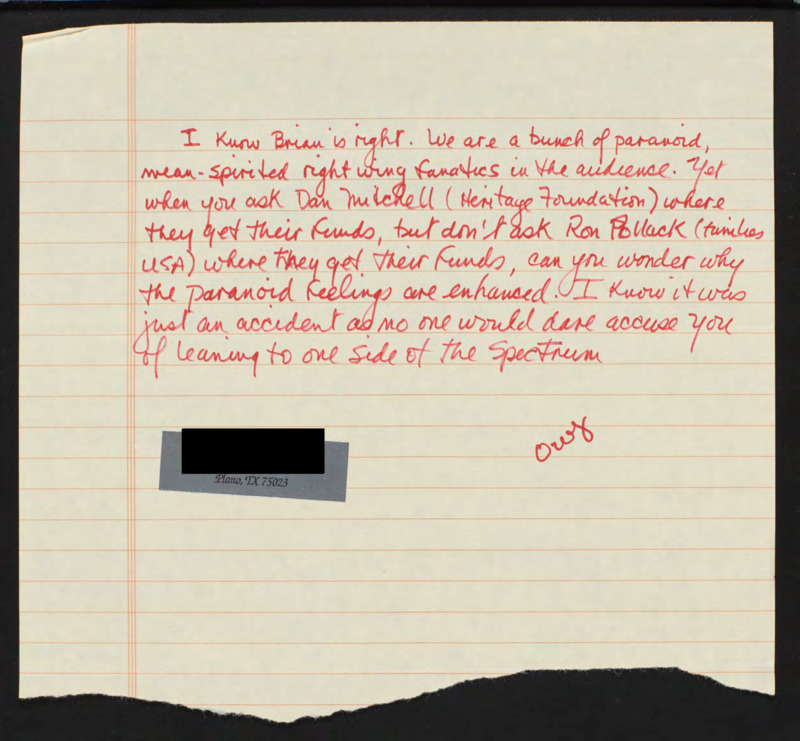 I Know Brian is right. We are a bunch of paranoid,
mean-spirited right wing fanatics in the audience. Yet
when you ask Dan Mitchell (Heritage Foundation) where
they get their funds, but don't ask Ron Pollack (Families
USA) where they get their funds, can you wonder why
the paranoid feelings are enhanced. I Know it was
just an accident as no one would dare accuse you
of leaning to one side of the Spectrum
Plano, TX 75023